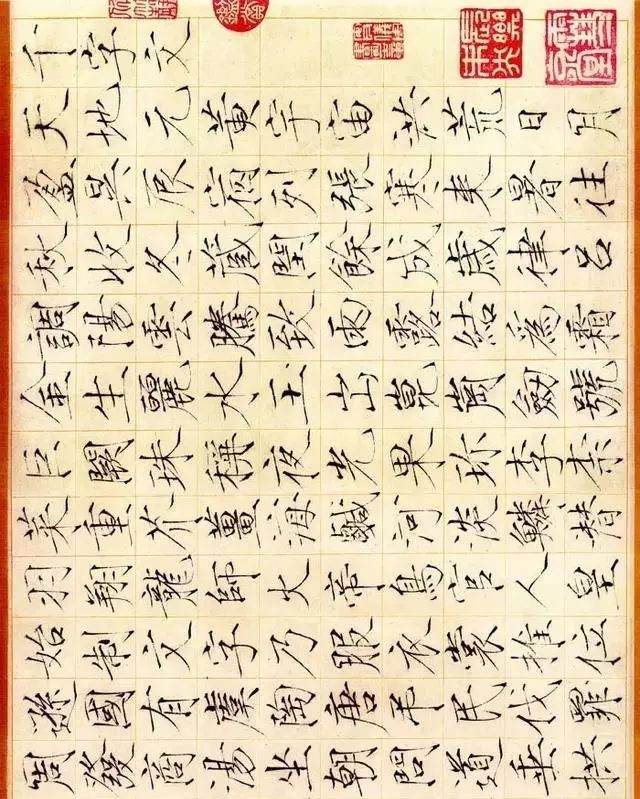 千字文
天地元黃宇宙洪荒日月
盈昃辰宿列張寒來暑往
秋收冬藏閏餘成歲律呂
調陽雲騰致雨露結為霜
金生麗水玉出崑岡劍號
巨闕珠稱夜光果珍李柰
菜重芥薑海鹹河淡鱗潛
羽翔龍師火帝鳥官人皇
始制文字乃服衣裳推位
遜國有虞陶唐弔民伐罪
周發商湯坐朝問道垂拱